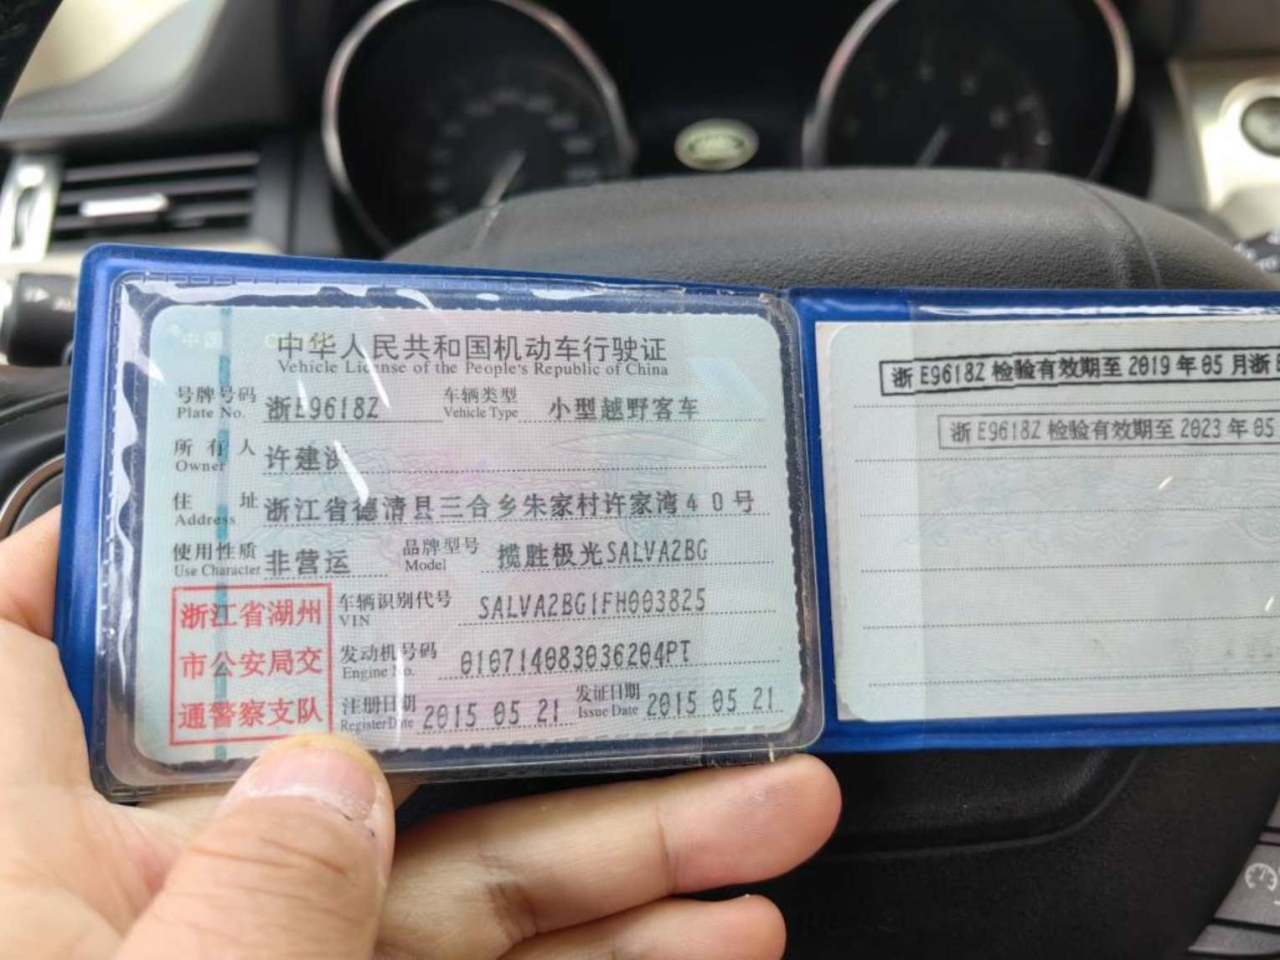 中华人民共和国机动车行驶证
Vehicle License of the People's Republic of China
号牌号码 浙E9618Z 车辆类型 小型越野客车
Plate No. Vehicle Type
所有人 许建
Owner
住址 浙江省德清县三合乡朱家村许家湾40号
Address
使用性质 非营运 品牌型号 揽胜极光SALVA2BG
Use Character Model
浙江省湖州
市公安局交
通警察支队
车辆识别代号 SALVA2BG1FH003825
VIN
发动机号码 010714083036204PT
Engine No.
注册日期 2015 05 21 发证日期 2015 05 21
Register Date Issue Date
浙E9618Z检验有效期至2019年05月浙E
浙E9618Z检验有效期至2023年05